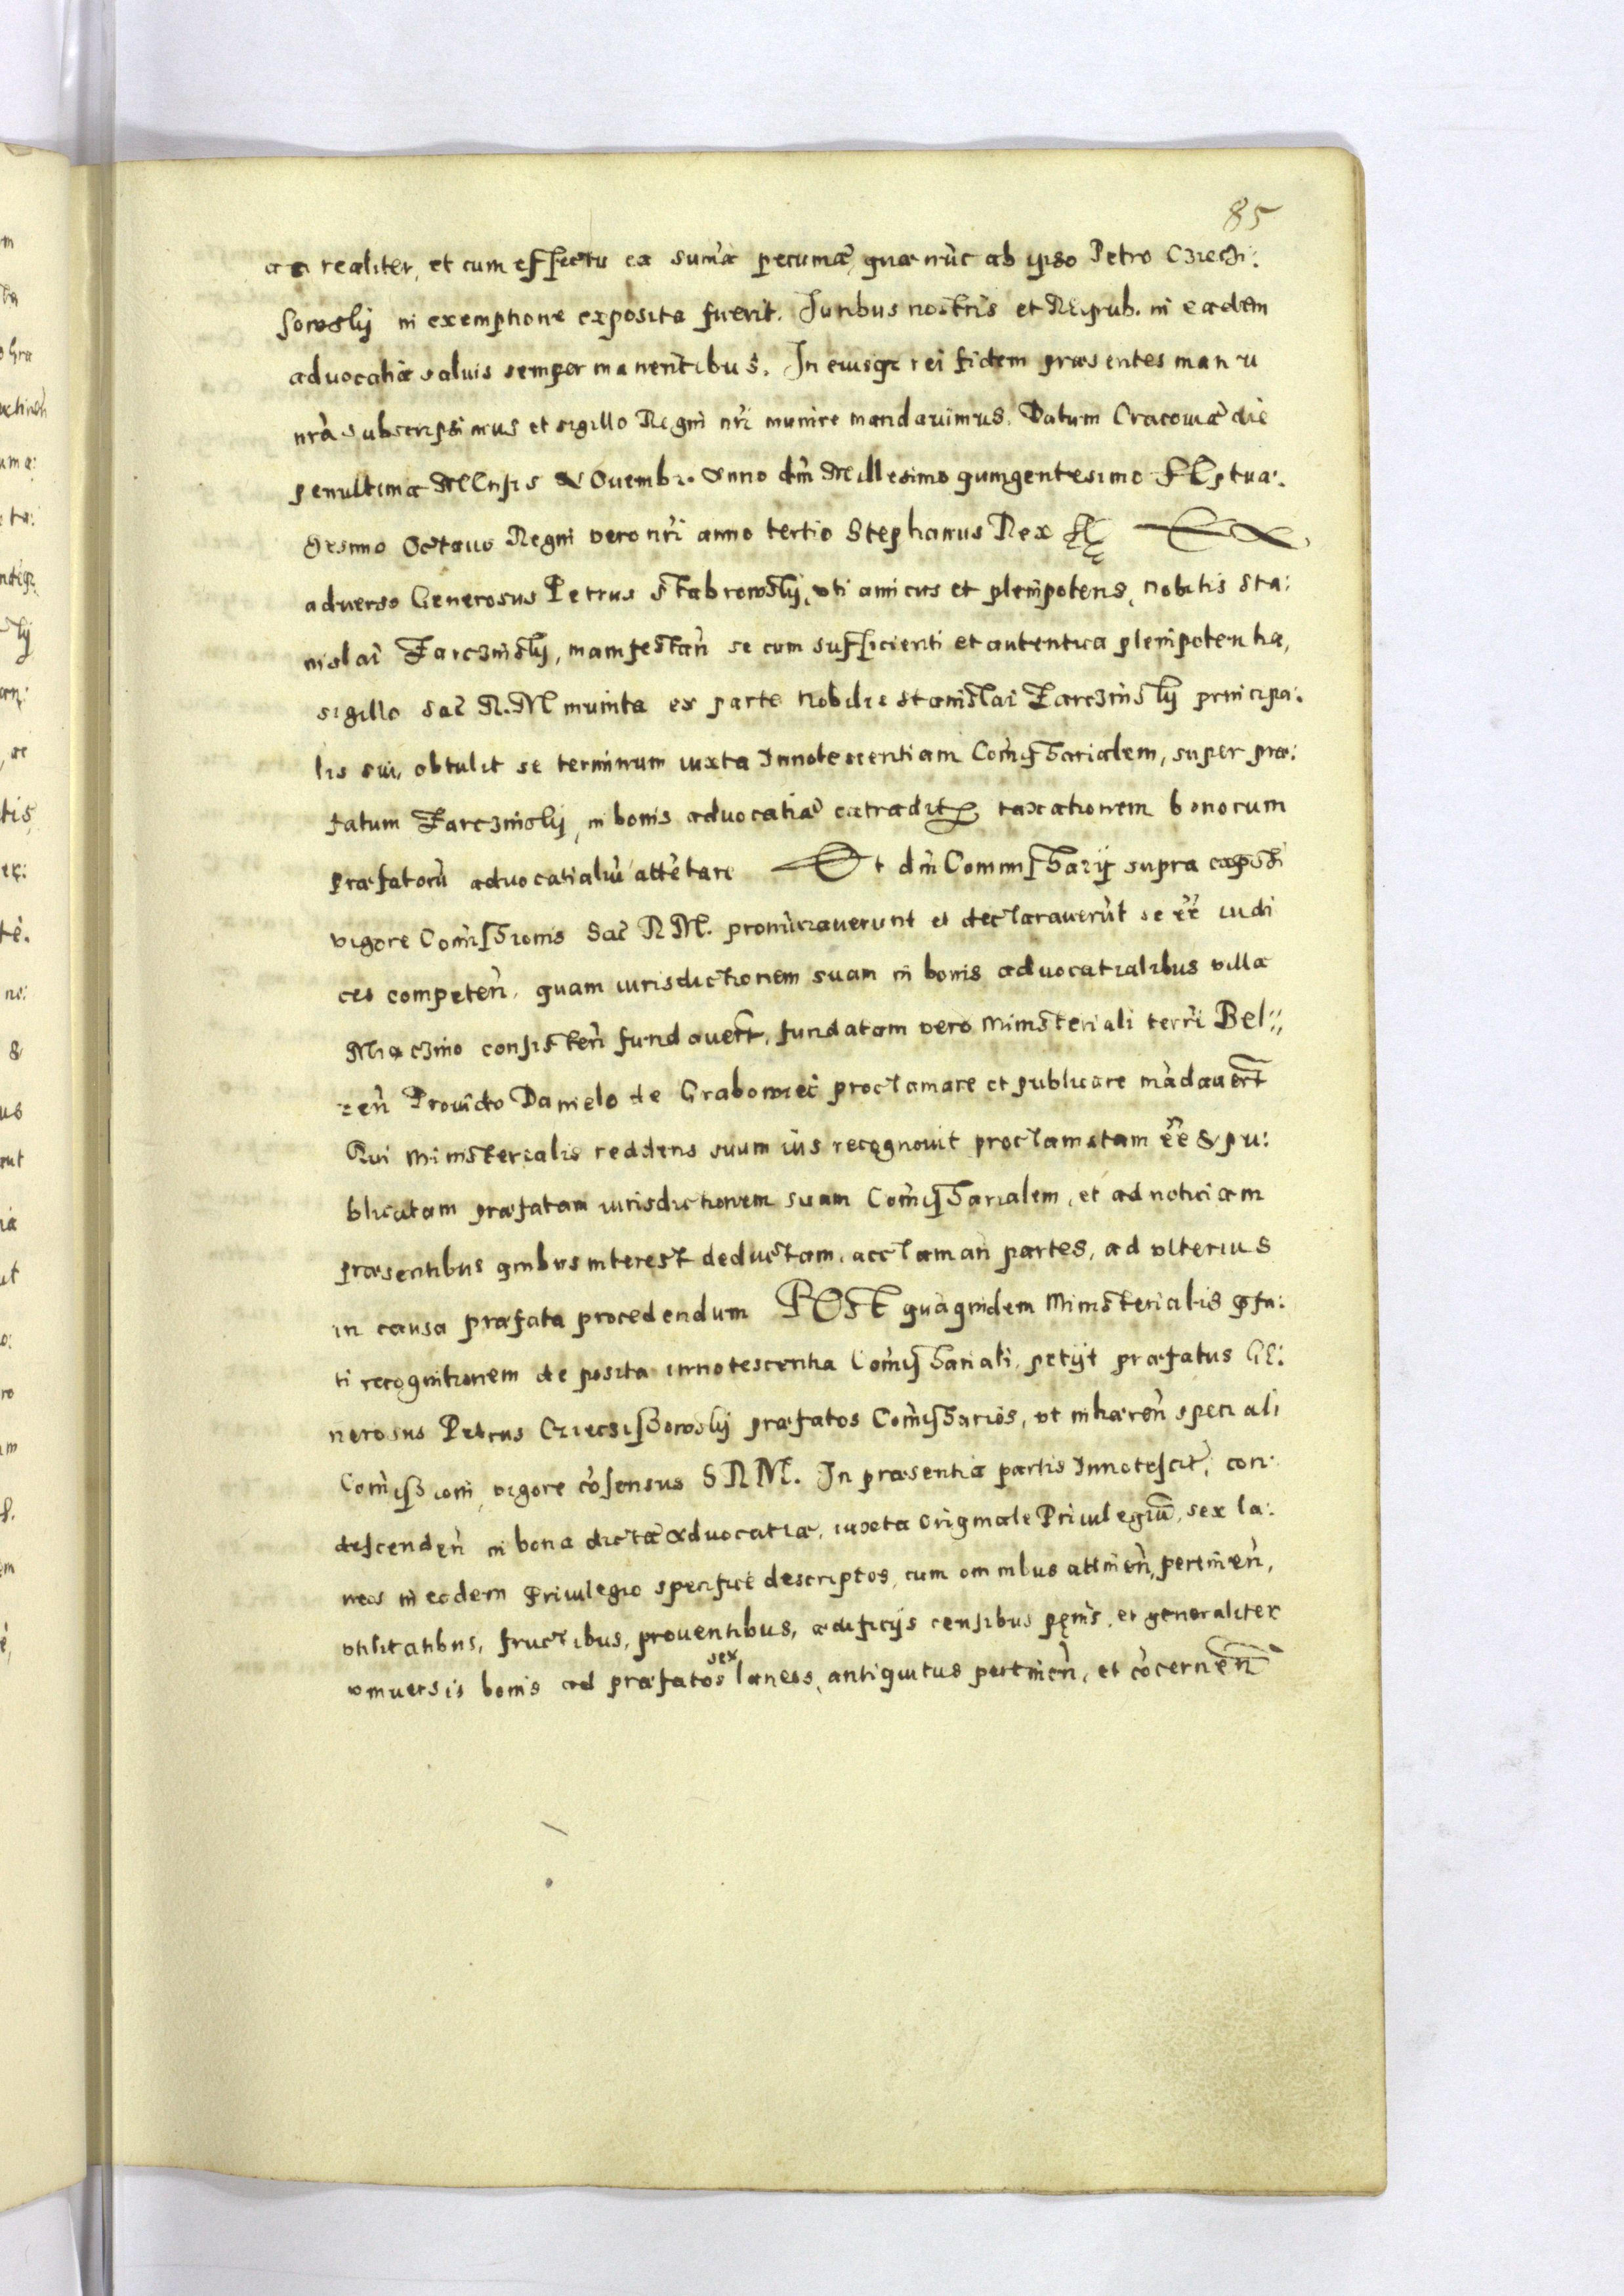 85
ac realiter, et cum effectu ea sum̃a pecuniæ, quæ nũc ab ipso Petro Cziechi:
sowsky in exemptione exposita fuerit. Juribus nostris et Reipub. in eadem
aduocatia saluis semper manentibus. In cuius rei fidem præsentes manu
nr̃a subscripsimus et sigillo Regni nr̃i munire mandauimus. Datum Cracouiæ die
penultima MEnsis NOuembr. Anno dm̃ Millesimo quingentesimo SEptua:
gesimo Octauo Regni vero nr̃i anno tertio Stephanus Rex Ex
aduerso Generosus Petrus Stabrowsky, vti amicus et plenipotens, nobilis Sta:
nislai Jarczinsky, manifestañ se cum sufficienti et autentica plenipotentia,
sigillo Sac̃ R. M munita ex parte nobilis Stanislai Jarczinsky principa:
lis sui, obtulit se terminum iuxta Innotescentiam Com̃issarialem, super præ:
fatum Jarczinsky, in bonis aduocatiæ taxationem bonorum
præfatorũ aduocatialiũ attẽtare Et dm̃ Commissarij supra
vigore Com̃issionis Sac̃ R M. pronũciauerunt et declarauerũt se ẽẽ iudi
ces competeñ, quam iurisdictionem suam in bonis aduocatialibus villæ
Miaczino consisteñ fundauer̃t, fundatam vero Ministeriali terr̃i Bel::
zeñ Prouido Danielo de Grabowiec proclamare et publicare mãdauer̃t
Qui Ministerialis reddens suum ius recognouit proclamatam ẽẽ & pu:
blicatam præfatam iurisdictionem suam Com̃issarialem, et ad noticiam
præsentibus quibus interest deductam, acclamañ partes, ad vlterius
in causa præfata procedendum POST quã quidem Ministerialis p̃fa:
ti recognitionem deposita innotescentia Com̃issariali, petijt præfatus GE:
nerosus Petrus Cziechissowsky præfatos Com̃issarios, vt inhæreñ speciali
Com̃issioni, vigore cõsensus S R M. In præsentia partis Innotescit, con:
descendeñ in bona dictæ aduocatiæ, iuxta Originale Priuilegiũ, sex la:
neos in eodem Priuilegio specifice descriptos, cum omnibus attineñ, pertineñ,
vtilitatibus, fructibus, prouentibus, ædificijs censibus et generaliter
vniuersis bonis ad præfatos sex laneos, antiquitus pertineñ, et cõcerneñ